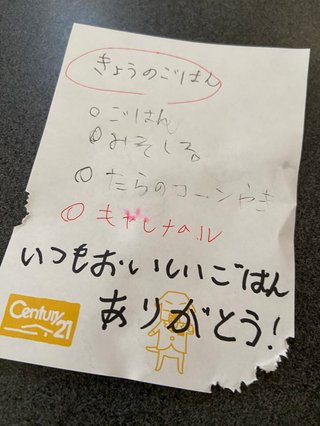 きょうのごはん
○ごはん
○みそしる
◎たらのコーンやき
◎キャレメのル
いつもおいしいごはん
ありがとう!
Century 21